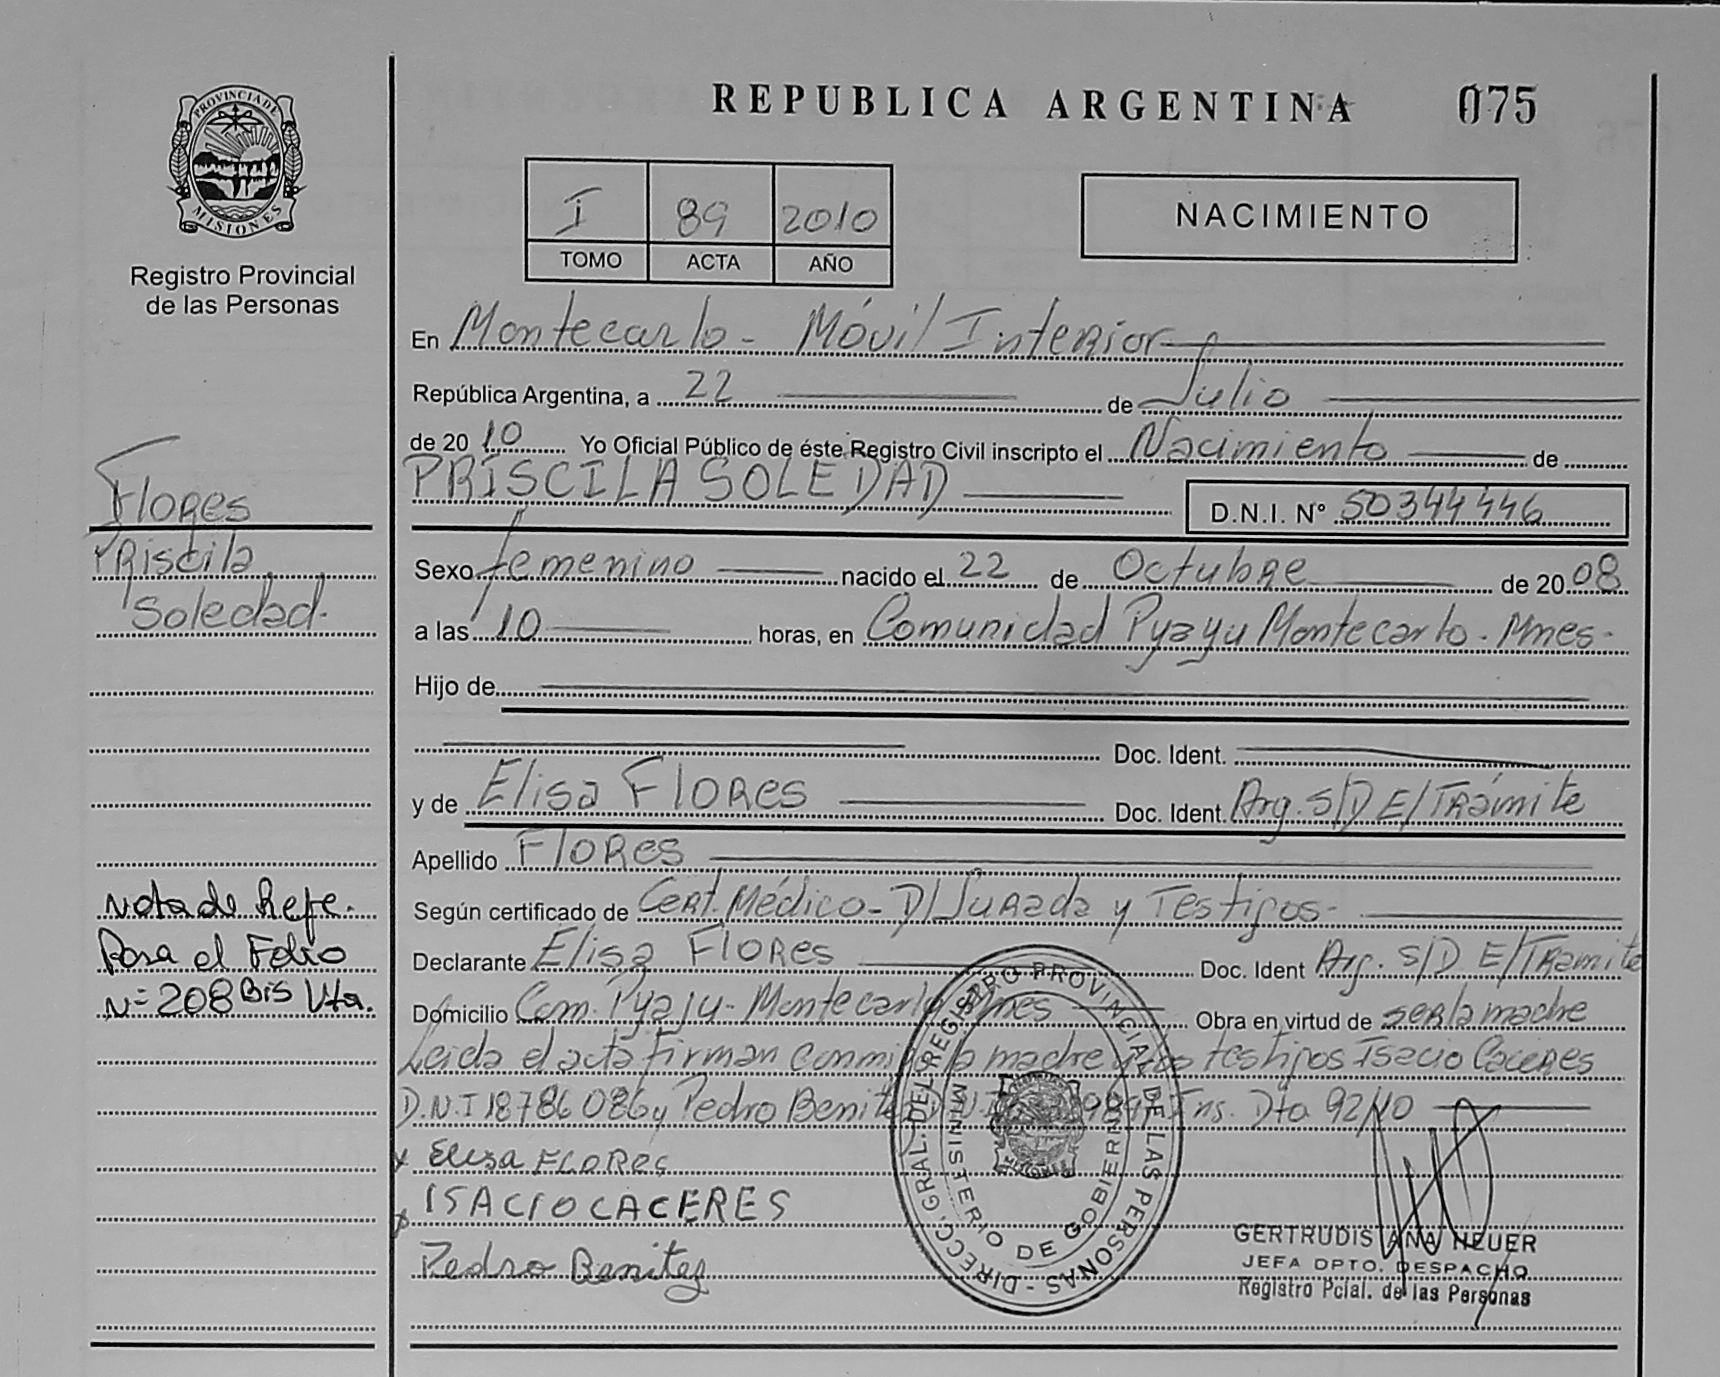 REPUBLICA ARGENTINA 075
PROVINCIA DE MISIONES
Registro Provincial
de las Personas
I 89 2010
TOMO ACTA AÑO
NACIMIENTO
En Montecarlo - Móvil Interior
República Argentina, a 22 de Julio
de 20 10 Yo Oficial Público de éste Registro Civil inscripto el Nacimiento de
PRISCILA SOLEDAD D.N.I. Nº 50344446
Flores
Priscila
Soledad.
Sexo femenino nacido el 22 de Octubre de 20 08
a las 10 horas, en Comunidad Pyayu Montecarlo - Mnes-
Hijo de
Doc. Ident.
y de Elisa Flores Doc. Ident. Arg. S/D E/Trámite
Apellido Flores
Según certificado de Cert. Médico - D/Jurada y Testigos-
Declarante Elisa Flores Doc. Ident Arg. S/D E/Tramite
Domicilio Com. Pyayu - Montecarlo Mnes Obra en virtud de ser la madre
Leida el acta firman conmigo la madre y los testigos Isacio Caceres
D.N.I 18786086 y Pedro Benitez D.N.I Ins. Dto 92/10
Nota de Refe.
Pasa el Folio
Nº 208 Bis Vta.
x Elisa FLORES
x ISACIO CACERES
Pedro Benitez
DIRECC. GRAL. DEL REGISTRO PROVINCIAL DE LAS PERSONAS -
MINISTERIO DE GOBIERNO
GERTRUDIS ANA HEUER
JEFA DPTO. DESPACHO
Registro Pcial. de las Personas